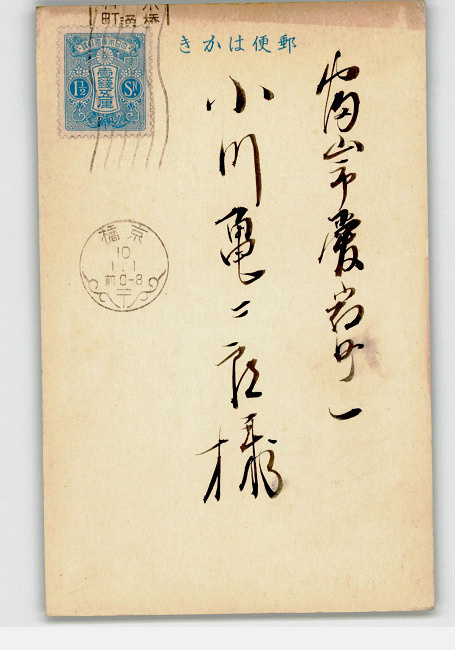 きかは便郵
富山市愛宕町一
小川亀二郎様
大日本帝國郵便
壹錢五厘
1½ Sn
京橋
10
1.1
前0-8